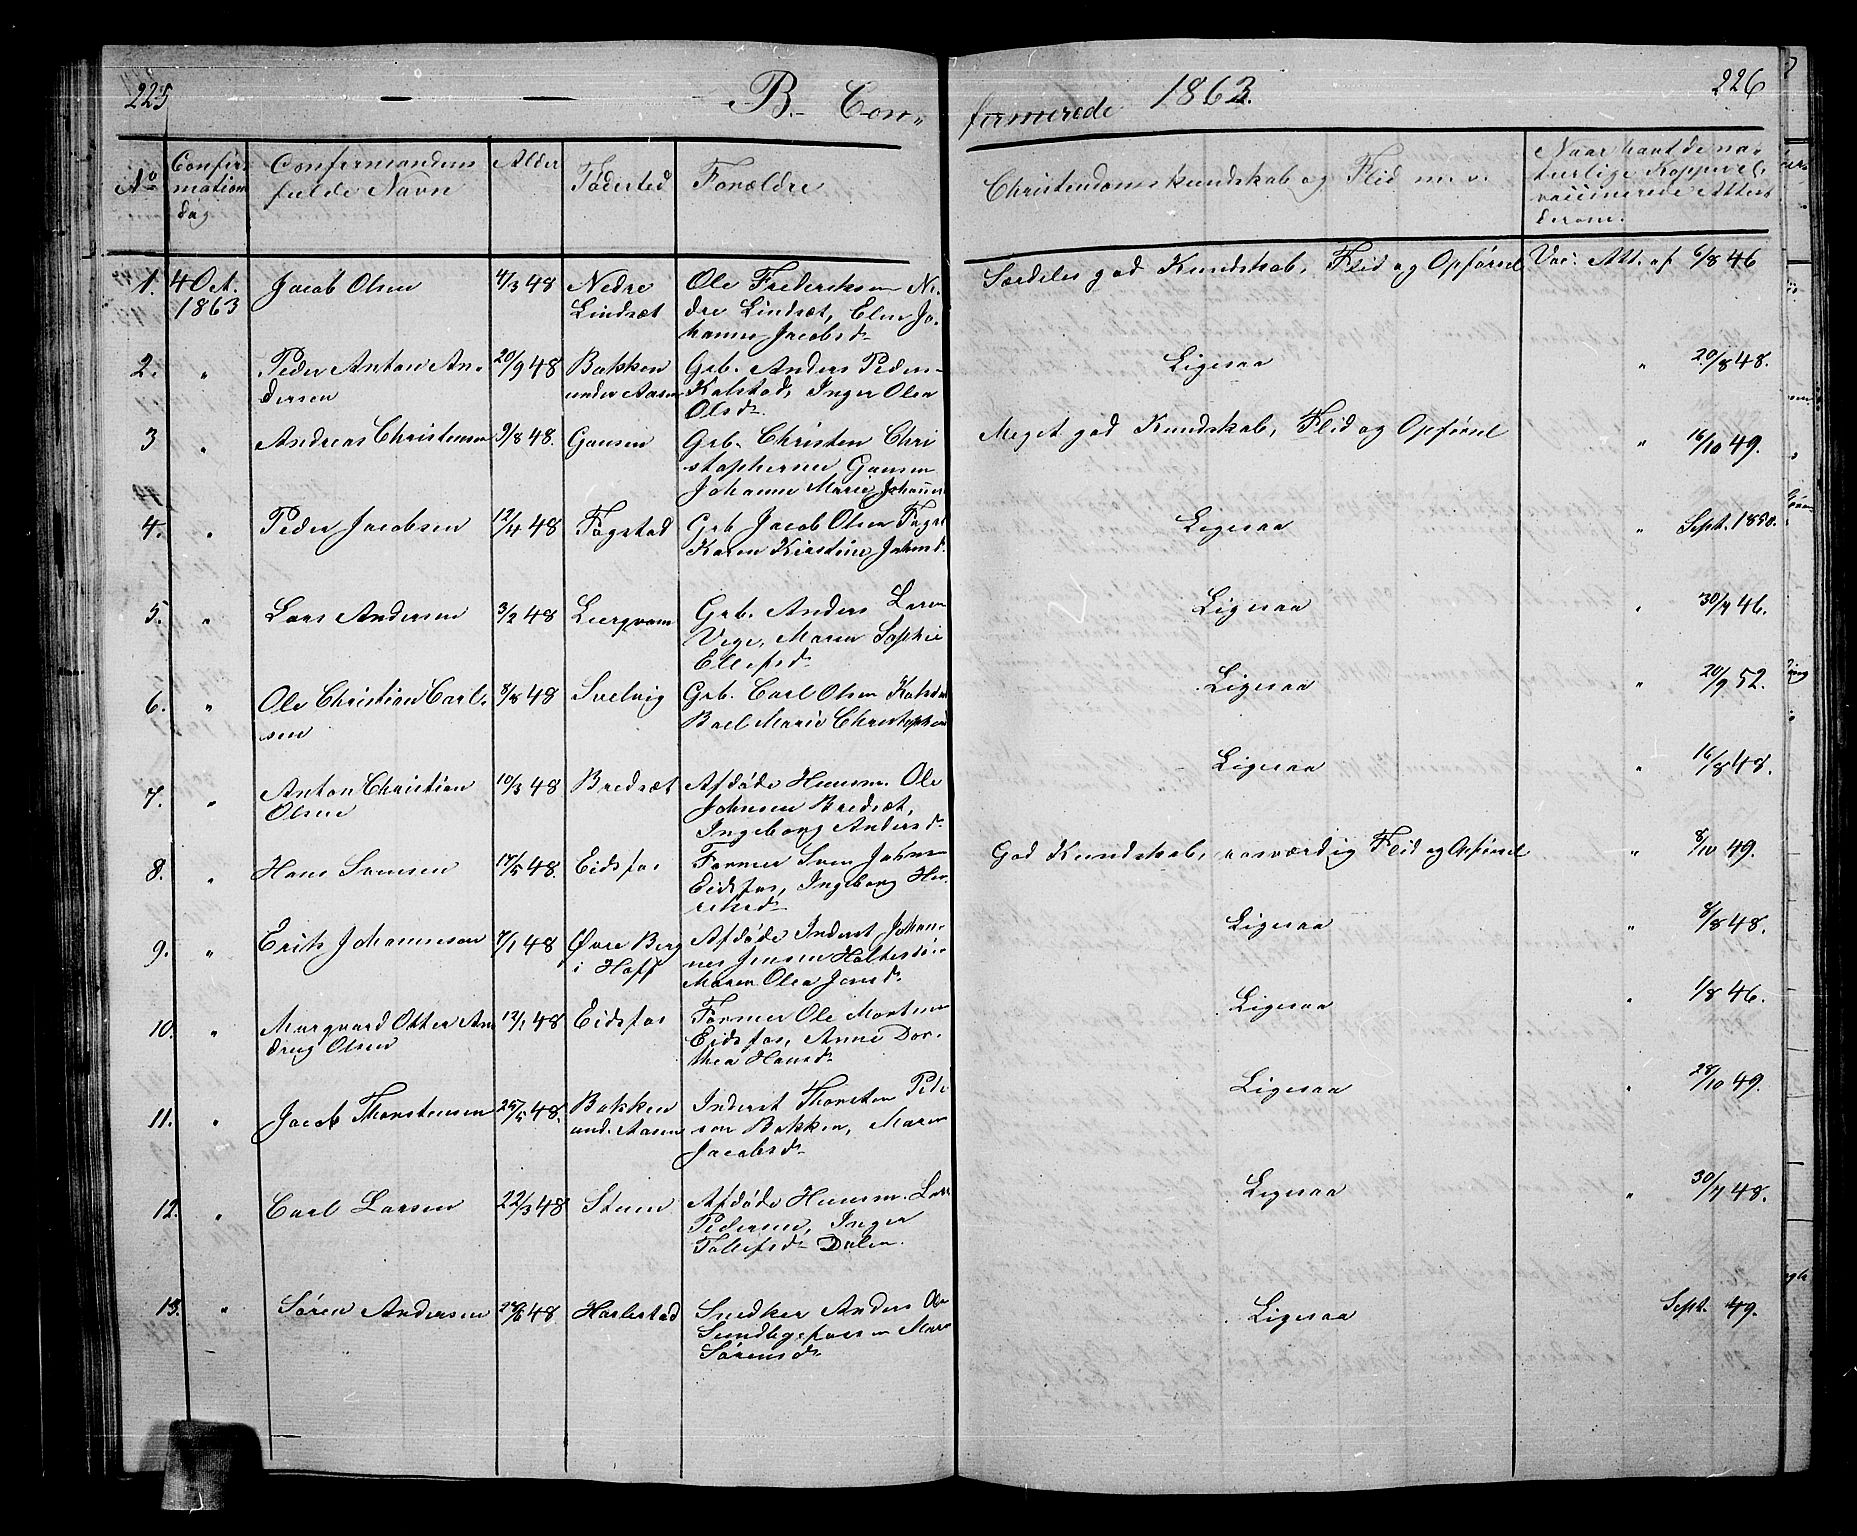 225 B. Con- firmerede 1863. 226
No Confirmations dag Confirmandens fulde Navne Alder Fødested Forældre Christendomskundskab og Flid m. v. Naar havt de naturlige Kopper el. vaccinerede Attest derom.
1. 4 Oct. 1863 Jacob Olsen 4/3 48 Nedre Lindsæt Ole Frederiksen Ne-
dre Lindsæt, Elen Jo-
hanne Jacobsd. Særdeles god Kundskab, Flid og Opførsel Vac. Att. af 6/8 46
2. " Peder Anton An-
dersen 20/9 48 Bakken
under Aasen Grb. Anders Peders-
Kalstad, Inger Olea
Olsd. Ligesaa " 20/8 48.
3 " Andreas Christensen 9/8 48. Gausen Grb. Christen Chri
stophersen Gausen
Johanne Marie Meget god Kundskab, Flid og Opførsel " 16/10 49.
4. " Peder Jacobsen 12/4 48 Fogstad Grb. Jacob Olsen
Karen Kirstine Ligesaa " Sept. 1850.
5. " Lars Andersen 3/2 48 Leergravn Grb. Anders Larsen
Vege, Maren Sophie
Ellefsd. Ligesaa " 30/7 46.
6. " Ole Christian Carl-
sen 8/8 48 Svelvig Grb. Carl Olsen
Boel Marie Ligesaa " 20/9 52.
7. " Anton Christian
Olsen 10/3 48 Bredsæt Afdøde Huusm. Ole
Johnsen Bredsæt,
Ingeborg Andersd. Ligesaa " 16/8 48.
8. " Hans Svensen 17/5 48. Eidsfos Former Sven
Eidsfos, Ingeborg Hen-
riksd. God Kundskab, rosværdig Flid og Opførsel " 8/10 49.
9. " Erik Johannesen 7/1 48 Øvre Berg
i Hoff Afdøde Inderst Johan-
nes Jensen
Maren Olea Ligesaa " 8/8 48.
10. " Marqvard Otter An
dreas Olsen 12/1 48 Eidsfos Former Ole Mortensen
Eidsfos, Anne Dor-
thea Hansd. Ligesaa " 1/8 46.
11. " Jacob Thorstensen 25/5 48. Bakken
und. Aasen Inderst Thorsten Peder
sen Bakken, Maren
Jacobsd. Ligesaa " 28/10 49.
12. " Carl Larsen 22/3 48 Steen Afdøde Huusm. Lars
Pedersen, Inger
Tollefsd. Dalen. Ligesaa " 30/7 48.
13. " Søren Andersen 48 Harlestad Snedker Anders
Maren
Sørensd. Ligesaa Sept. 49.